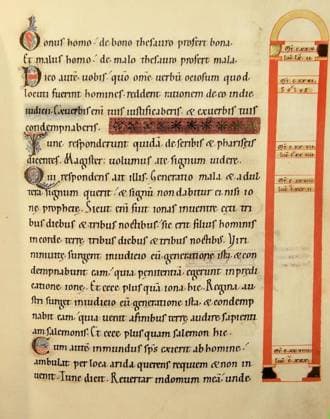 Bonus homo. de bono thesauro profert bona.
Et malus homo. de malo thesauro profert mala.
Dico autē uobis. quō omē uerbū ociosum quod
locuti fuerint homines. reddent rationem de eo indie
iudicii. Exuerbis enī tuis iustificaberis. & exuerbis tuis
condempnaberis.
Tunc responderunt quidā de scribis & phariseis
dicentes. Magister. uolumus ate signum uidere.
Qui respondens ait illis. Generatio mala & adul
tera signum querit. & signū non dabitur ei nisi io
ne prophete. Sicut enī fuit ionas inuentre ceti trib
bus diebus & tribus noctibus. sic erit filius hominis
incorde terre tribus diebus & tribus noctibus. Viri
niniuite surgent iniudicio cū generatione ista. & con
dempnabunt eam. quia penitentiā egerunt inpredi
catione ione. Et ecce plus quā iona hic. Regina au
stri surget iniudicio cū generatione ista. & condemp
nabit eam. quia uenit afinibus terre audire sapienti
am salemonis. Et ecce plus quam salemon hic.
Cum autē inmundus sp̄s exierit ab homine.
ambulat per loca arida querens requiem & non in
uenit. Tunc dicit. Reuertar indomum meā. unde